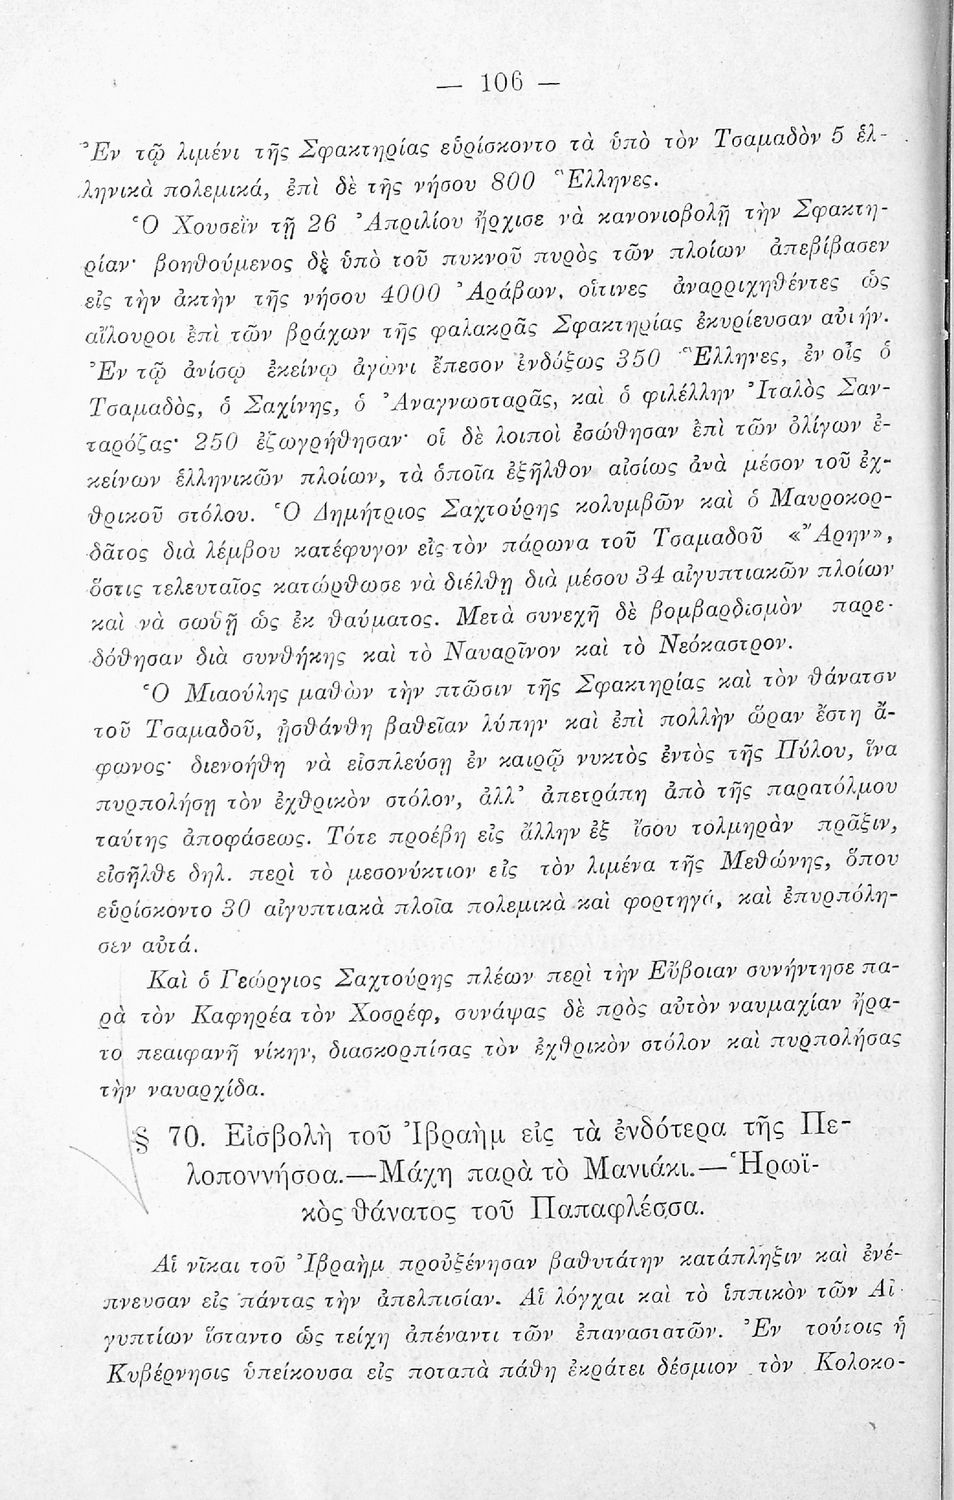 — 106 —
Ἐν τῷ λιμένι τῆς Σφακτηρίας εὑρίσκοντο τὰ ὑπὸ τὸν Τσαμαδὸν 5 ἑλ-
ληνικὰ πολεμικά, ἐπὶ δὲ τῆς νήσου 800 Ἕλληνες.
Ὁ Χουσεῒν τῇ 26 Ἀπριλίου ἤρχισε νὰ κανονιοβολῇ τὴν Σφακτη-
ρίαν· βοηθούμενος δὲ ὑπὸ τοῦ πυκνοῦ πυρὸς τῶν πλοίων ἀπεβίβασεν
εἰς τὴν ἀκτὴν τῆς νήσου 4000 Ἀράβων, οἵτινες ἀναρριχηθέντες ὡς
αἴλουροι ἐπὶ τῶν βράχων τῆς φαλακρᾶς Σφακτηρίας ἐκυρίευσαν αὐτήν.
Ἐν τῷ ἀνίσῳ ἐκείνῳ ἀγῶνι ἔπεσον ἐνδόξως 350 Ἕλληνες, ἐν οἷς ὁ
Τσαμαδὸς, ὁ Σαχίνης, ὁ Ἀναγνωσταρᾶς, καὶ ὁ φιλέλλην Ἰταλὸς Σαν-
ταρόζας· 250 ἐζωγρήθησαν· οἱ δὲ λοιποὶ ἐσώθησαν ἐπὶ τῶν ὀλίγων ἐ-
κείνων ἑλληνικῶν πλοίων, τὰ ὁποῖα ἐξῆλθον αἰσίως ἀνὰ μέσον τοῦ ἐχ-
θρικοῦ στόλου. Ὁ Δημήτριος Σαχτούρης κολυμβῶν καὶ ὁ Μαυροκορ-
δᾶτος διὰ λέμβου κατέφυγον εἰς τὸν πάρωνα τοῦ Τσαμαδοῦ «Ἄρην»,
ὅστις τελευταῖος κατώρθωσε νὰ διέλθῃ διὰ μέσου 34 αἰγυπτιακῶν πλοίων
καὶ νὰ σωθῇ ὡς ἐκ θαύματος. Μετὰ συνεχῆ δὲ βομβαρδισμὸν παρε-
δόθησαν διὰ συνθήκης καὶ τὸ Ναυαρῖνον καὶ τὸ Νεόκαστρον.
Ὁ Μιαούλης μαθὼν τὴν πτῶσιν τῆς Σφακτηρίας καὶ τὸν θάνατον
τοῦ Τσαμαδοῦ, ᾐσθάνθη βαθεῖαν λύπην καὶ ἐπὶ πολλὴν ὥραν ἔστη ἄ-
φωνος· διενοήθη νὰ εἰσπλεύσῃ ἐν καιρῷ νυκτὸς ἐντὸς τῆς Πύλου, ἵνα
πυρπολήσῃ τὸν ἐχθρικὸν στόλον, ἀλλ' ἀπετράπη ἀπὸ τῆς παρατόλμου
ταύτης ἀποφάσεως. Τότε προέβη εἰς ἄλλην ἐξ ἴσου τολμηρὰν πρᾶξιν,
εἰσῆλθε δηλ. περὶ τὸ μεσονύκτιον εἰς τὸν λιμένα τῆς Μεθώνης, ὅπου
εὑρίσκοντο 30 αἰγυπτιακὰ πλοῖα πολεμικὰ καὶ φορτηγά, καὶ ἐπυρπόλη-
σεν αὐτά.
Καὶ ὁ Γεώργιος Σαχτούρης πλέων περὶ τὴν Εὔβοιαν συνήντησε πα-
ρὰ τὸν Καφηρέα τὸν Χοσρέφ, συνάψας δὲ πρὸς αὐτὸν ναυμαχίαν ἤρα-
το πεαιφανῆ νίκην, διασκορπίσας τὸν ἐχθρικὸν στόλον καὶ πυρπολήσας
τὴν ναυαρχίδα.
§ 70. Εἰσβολὴ τοῦ Ἰβραὴμ εἰς τὰ ἐνδότερα τῆς Πε-
λοποννήσοα.—Μάχη παρὰ τὸ Μανιάκι.—Ἡρωϊ-
κὸς θάνατος τοῦ Παπαφλέσσα.
Αἱ νῖκαι τοῦ Ἰβραὴμ προὐξένησαν βαθυτάτην κατάπληξιν καὶ ἐνέ-
πνευσαν εἰς πάντας τὴν ἀπελπισίαν. Αἱ λόγχαι καὶ τὸ ἱππικὸν τῶν Αἰ-
γυπτίων ἵσταντο ὡς τείχη ἀπέναντι τῶν ἐπανασιατῶν. Ἐν τούτοις ἡ
Κυβέρνησις ὑπείκουσα εἰς ποταπὰ πάθη ἐκράτει δέσμιον τὸν Κολοκο-